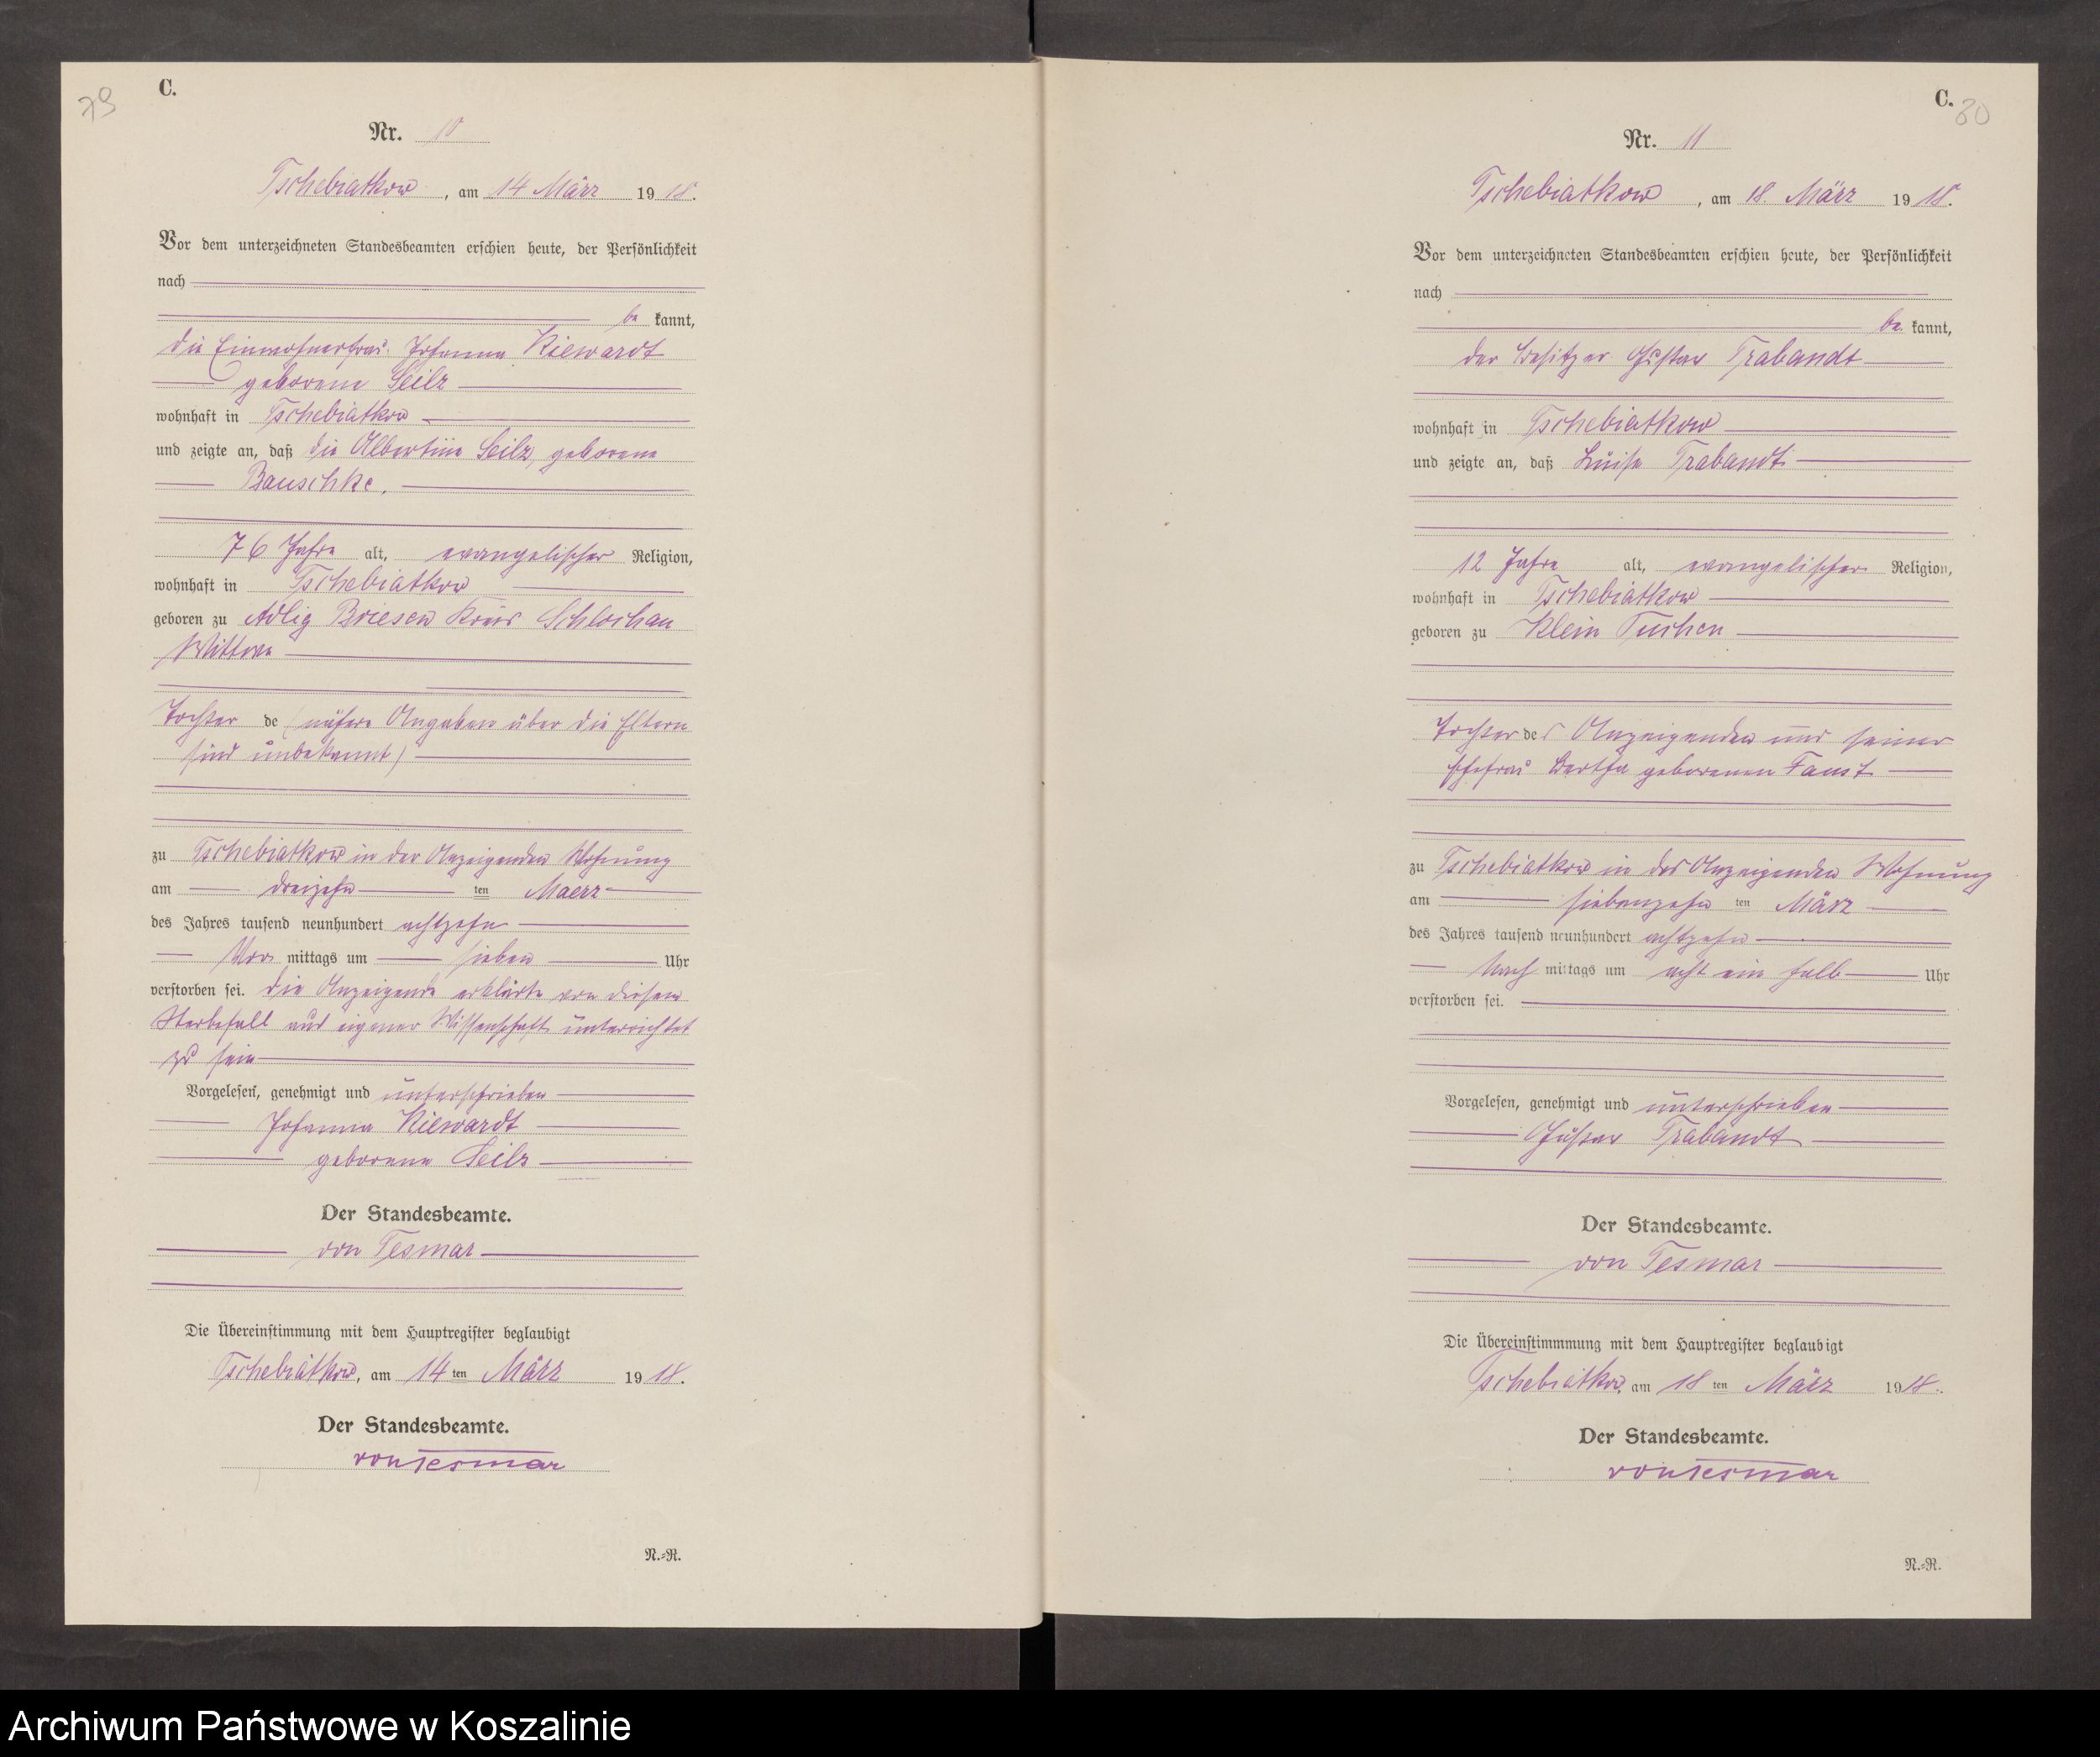 79
C.
Nr. 10
Tschebiatkow, am 14 März 1918.
Vor dem unterzeichneten Standesbeamten erschien heute, der Persönlichkeit
nach
be kannt,
die Einwohnerfrau Johanna Kiewardt
geborene Seilz
wohnhaft in Tschebiatkow
und zeigte an, daß die Albertine Seilz, geborene
Bauschke,
76 Jahre alt, evangelischer Religion,
wohnhaft in Tschebiatkow
geboren zu Adlig Briesen Kreis Schlochau
Wittwe
Tochter de (nähere Angaben über die Eltern
sind unbekannt)
zu Tschebiatkow in der Anzeigenden Wohnung
am dreizehn ten Maerz
des Jahres tausend neunhundert achtzehn
Vor mittags um sieben Uhr
verstorben sei. Die Anzeigende erklärte von diesem
Sterbefall aus eigener Wissenschaft unterrichtet
zu sein
Vorgelesen, genehmigt und unterschrieben
Johanna Kiewardt
geborene Seilz
Der Standesbeamte.
von Tesmar
Die Übereinstimmung mit dem Hauptregister beglaubigt
Tschebiatkow, am 14 ten März 1918.
Der Standesbeamte.
von Tesmar
N.=R.
C.
80
Nr. 11
Tschebiatkow, am 18. März 1918.
Vor dem unterzeichneten Standesbeamten erschien heute, der Persönlichkeit
nach
be kannt,
der Besitzer Gustav Trabandt
wohnhaft in Tschebiatkow
und zeigte an, daß Luise Trabandt
12 Jahre alt, evangelischer Religion,
wohnhaft in Tschebiatkow
geboren zu Klein Tuchen
Tochter des Anzeigenden und seiner
Ehefrau Bertha geborenen Faust
zu Tschebiatkow in des Anzeigenden Wohnung
am siebenzehn ten März
des Jahres tausend neunhundert achtzehn
Nach mittags um acht ein halb Uhr
verstorben sei.
Vorgelesen, genehmigt und unterschrieben
Gustav Trabandt
Der Standesbeamte.
von Tesmar
Die Übereinstimmmung mit dem Hauptregister beglaubigt
Tschebiatkow, am 18 ten März 1918.
Der Standesbeamte.
von Tesmar
N.=R.
Archiwum Państwowe w Koszalinie